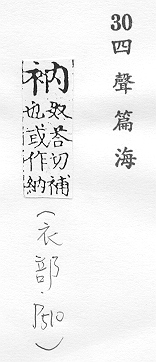 30四聲篇海
衲奴荅切補
也或作納
(衣部.P510)